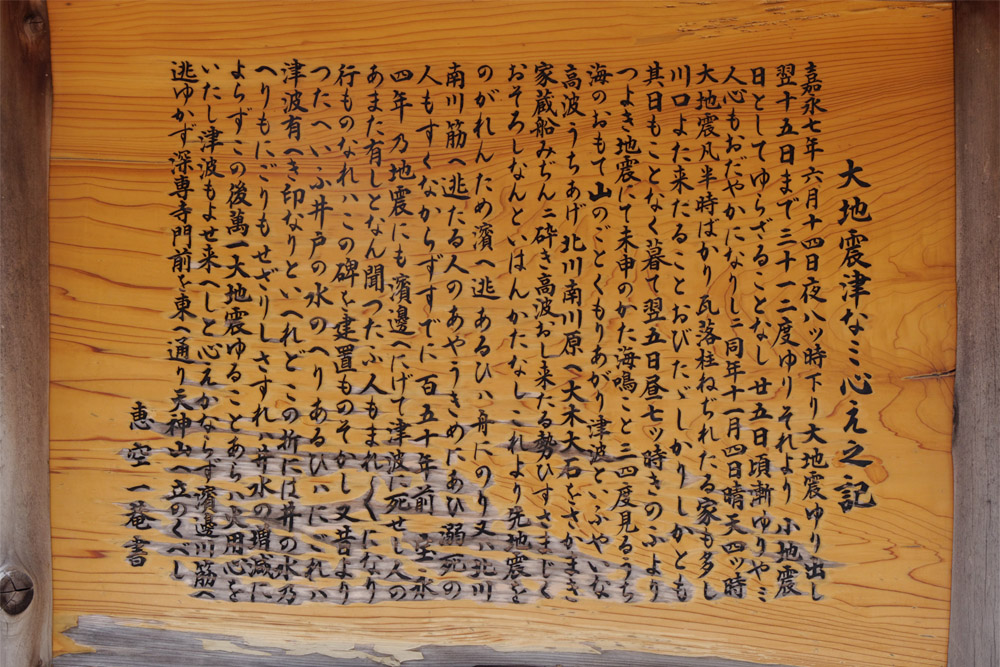 大地震津なミ心え之記
嘉永七年六月十四日夜八ツ時下り大地震ゆり出し
翌十五日まで三十一二度ゆりそれより小地震
日としてゆらざることなし廿五日頃漸ゆりやミ
人心もおだやかになりしニ同年十一月四日晴天四ツ時
大地震凡半時ばかり瓦落柱ねぢれたる家も多し
川口よた来たることおびたゞしかりしかとも
其日もことなく暮て翌五日昼七ツ時きのふより
つよき地震にて未申のかた海鳴こと三四度見るうち
海のおもて山のごとくもりあがり津波といふやいな
高波うちあげ北川南川原へ大木大石をさかまき
家蔵船みぢんニ砕き高波おし来たる勢ひすさまじく
おそろしなんといはんかたなしこれより先地震を
のがれんため濱へ逃あるひハ舟にのり又ハ北川
南川筋へ逃たる人のあやうきめにあひ溺死の
人もすくなからずすでに百五十年前宝永
四年乃地震にも濱邊へにげて津波に死せし人の
あまた有しとなん聞つたふ人もまれ〳〵になり
行ものなれハこの碑を建置ものそかし又昔より
つたへいふ井戸の水のへりあるひハにごれハ
津波有へき印なりといへれどこの折には井の水乃
へりもにごりもせざりしさすれハ井水の増減に
よらずこの後萬一大地震ゆることあらハ火用心を
いたし津波もよせ来へしと心えかならず濱邊川筋へ
逃ゆかず深専寺門前を東へ通り天神山へ立のくべし
恵空一菴書